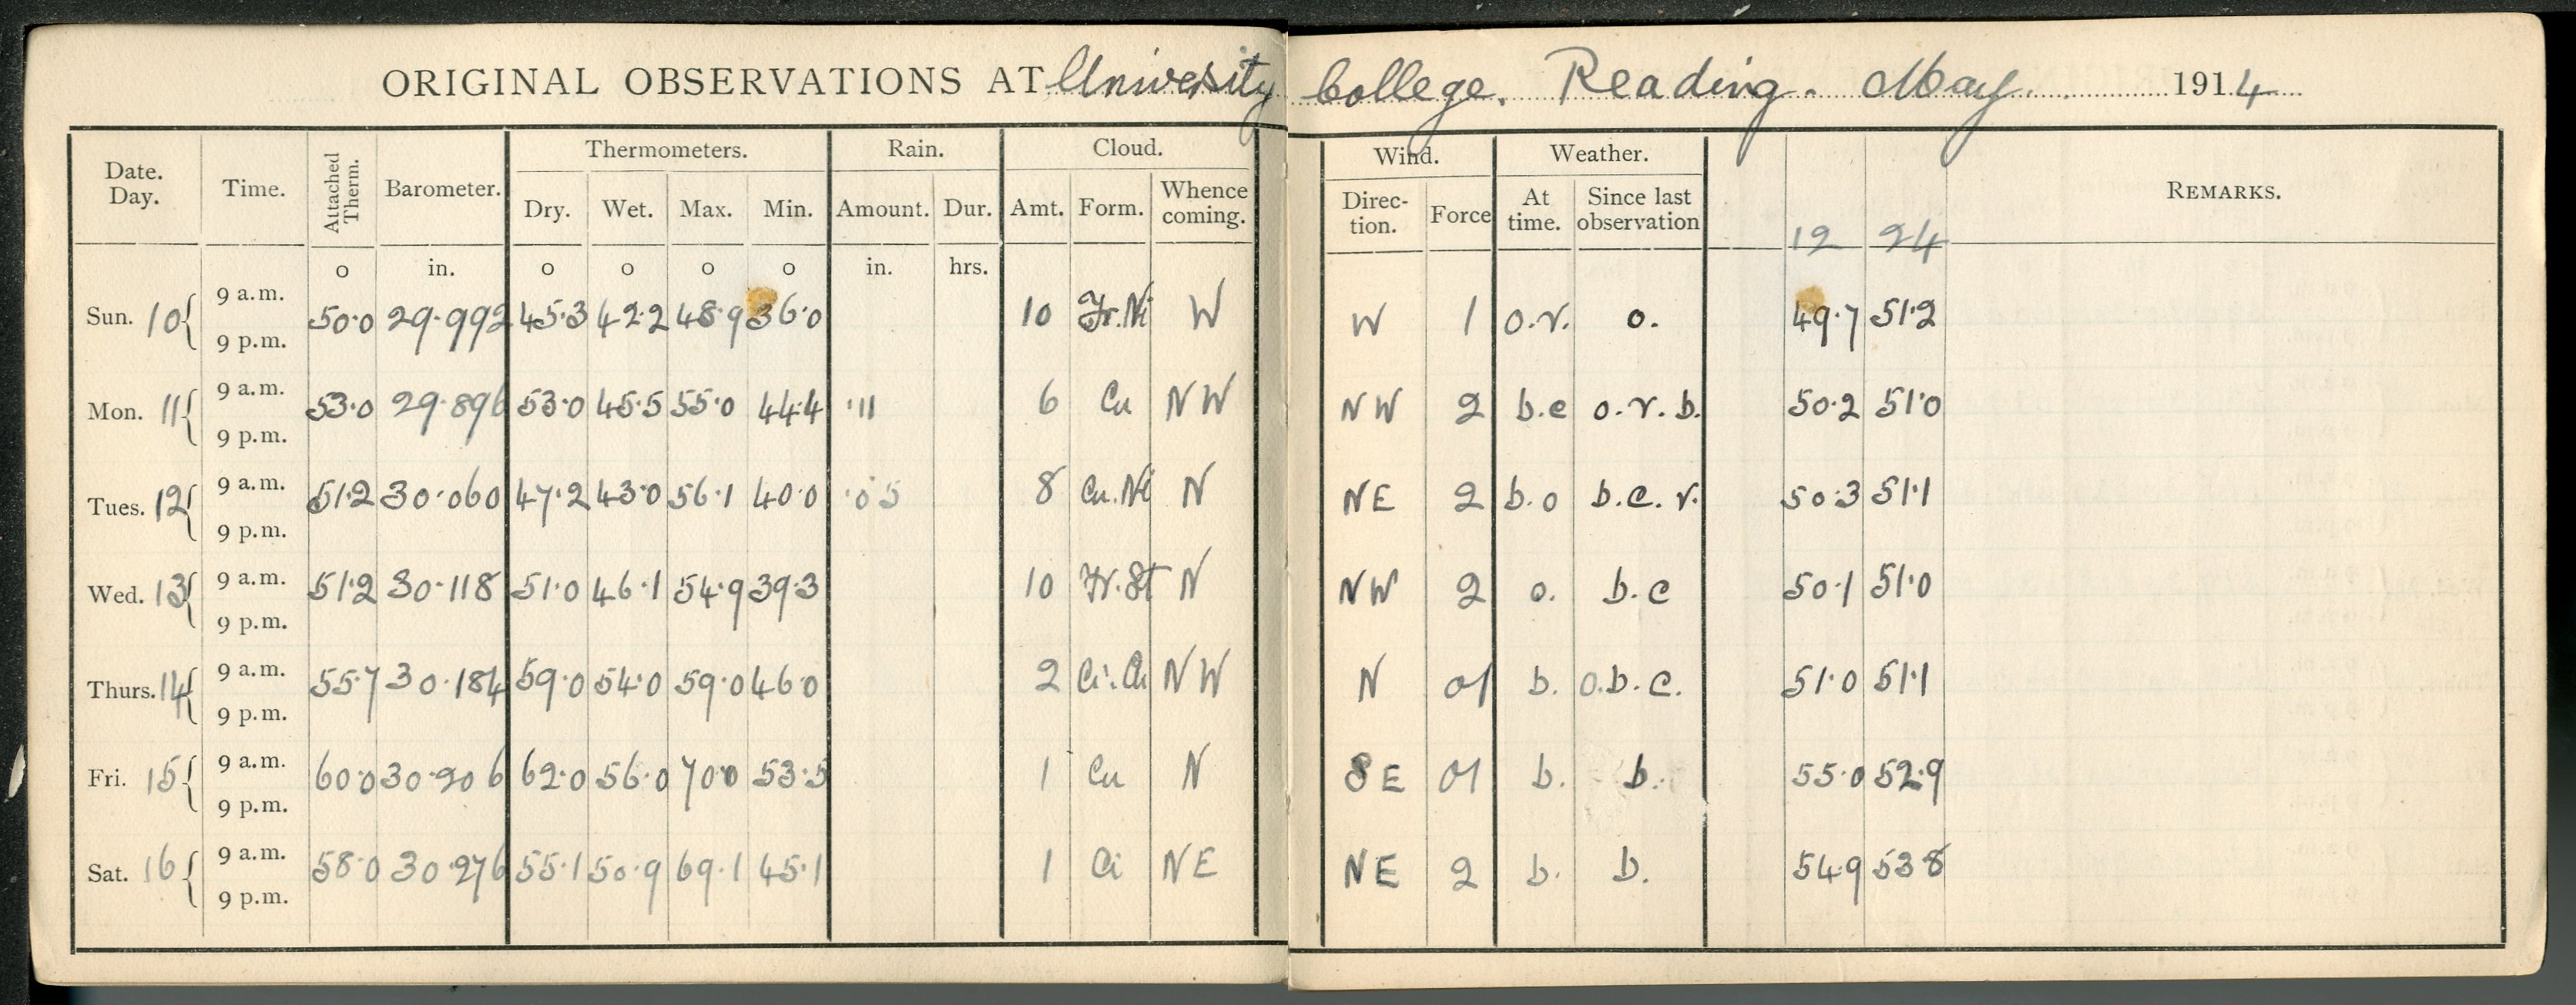 ORIGINAL OBSERVATIONS AT University College. Reading. May. 1914
Date. Day. Time. Attached Therm. Barometer. Thermometers. Rain. Cloud. Wind. Weather. REMARKS.
Dry. Wet. Max. Min. Amount. Dur. Amt. Form. Whence coming. Direc-tion. Force At time. Since last observation 12 24
o in. o o o o in. hrs.
Sun. 10 9 a.m. 50.0 29.992 45.3 42.2 48.9 36.0 10 Fr.Ni W W 1 o.r. o. 49.7 51.2
9 p.m.
Mon. 11 9 a.m. 53.0 29.896 53.0 45.5 55.0 44.4 .11 6 Cu NW NW 2 b.c o.r.b. 50.2 51.0
9 p.m.
Tues. 12 9 a.m. 51.2 30.060 47.2 43.0 56.1 40.0 .05 8 Cu.Ni N NE 2 b.o b.c.r. 50.3 51.1
9 p.m.
Wed. 13 9 a.m. 51.2 30.118 51.0 46.1 54.9 39.3 10 Fr.St N NW 2 o. b.c 50.1 51.0
9 p.m.
Thurs. 14 9 a.m. 55.7 30.184 59.0 54.0 59.0 46.0 2 Ci.Cu NW N 01 b. o.b.c. 51.0 51.1
9 p.m.
Fri. 15 9 a.m. 60.0 30.206 62.0 56.0 70.0 53.5 1 Cu N SE 01 b. b. 55.0 52.9
9 p.m.
Sat. 16 9 a.m. 58.0 30.276 55.1 50.9 69.1 45.1 1 Ci NE NE 2 b. b. 54.9 53.8
9 p.m.